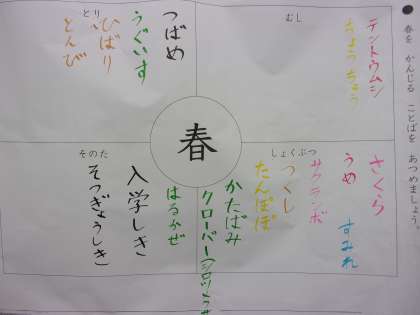 春を かんじる ことばを あつめましょう。
むし
テントウムシ
ちょうちょう
とり
つばめ
うぐいす
ひばり
とんび
春
しょくぶつ
さくら
うめ
すみれ
サクランボ
つくし
たんぽぽ
かたばみ
クローバー(シロツメクサ
そのた
はるかぜ
入学しき
そつぎょうしき